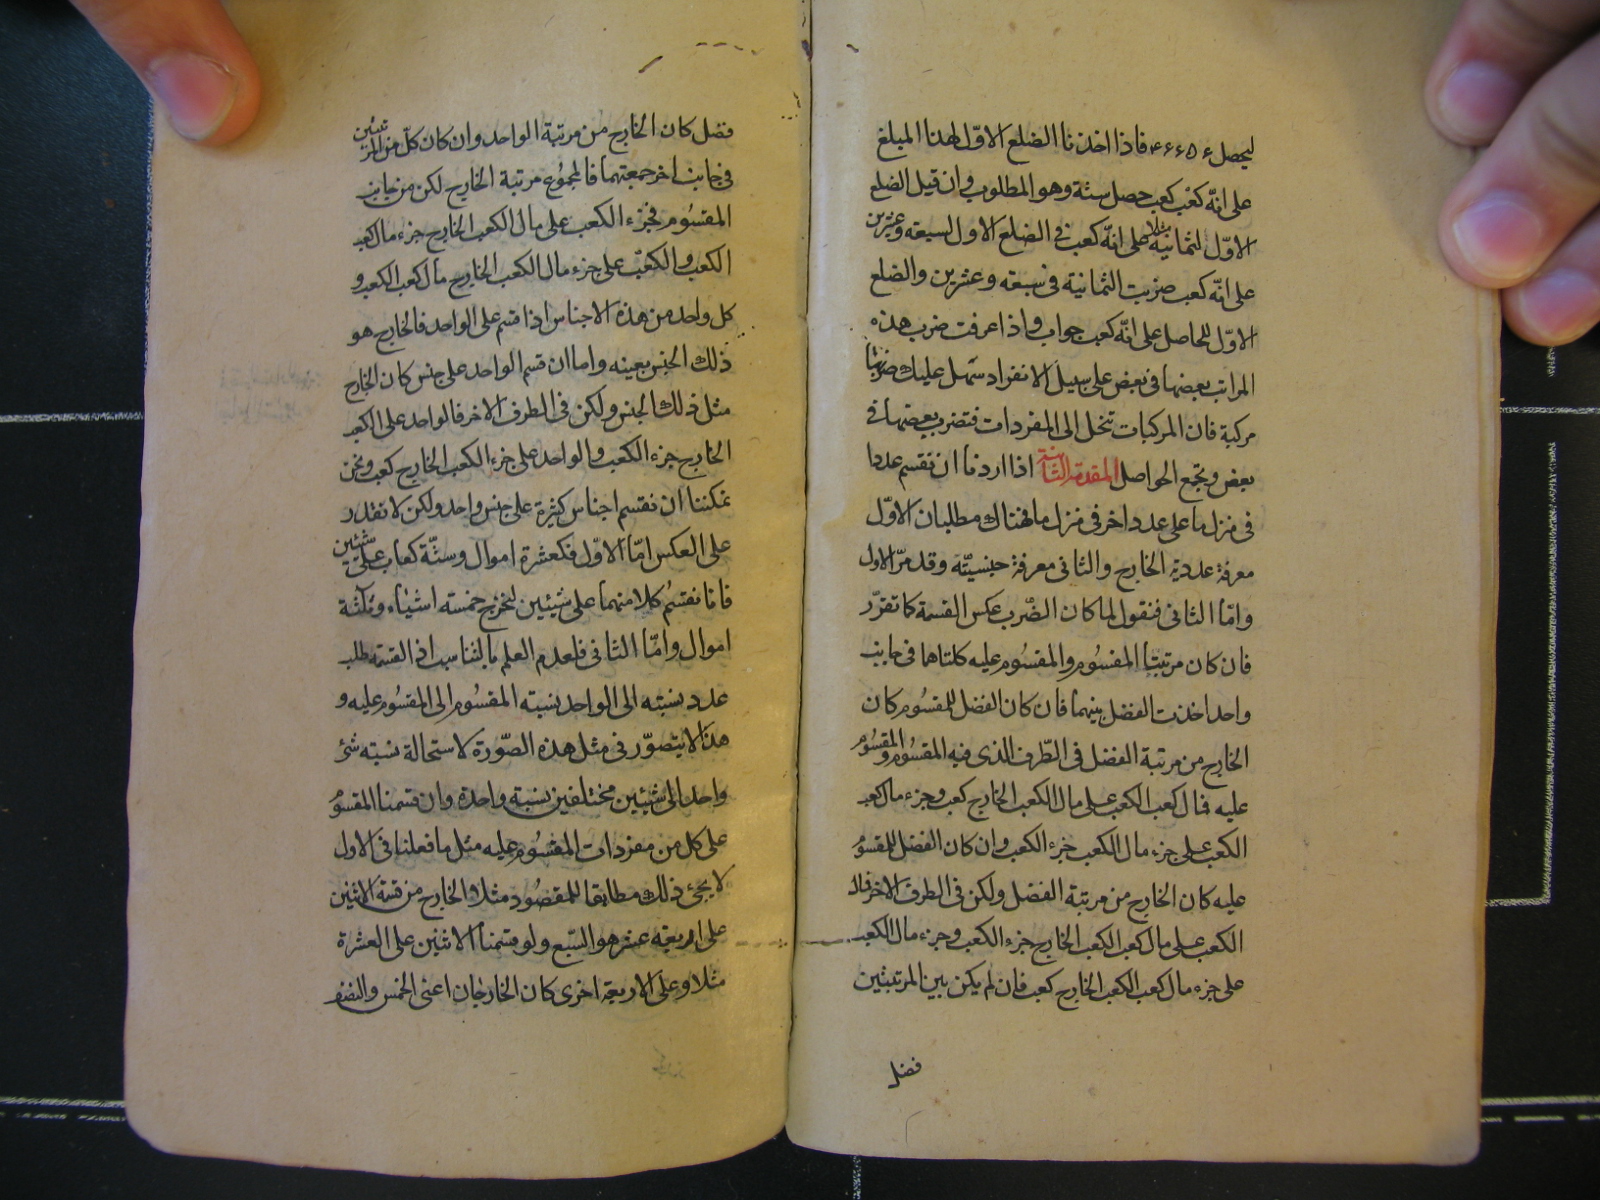 ليحصل ٤٦٦٥٤ فاذا اخذنا الضلع الاوّل لهذا المبلغ
على انّه كعب كعب حصل ستة وهو المطلوب وان قيل الضلع
الاوّل لثمانية مثلا على انّه كعب فى الضلع الاول لسبعة وعشرين
على انّه كعب ضربت الثمانية فى سبعة وعشرين والضلع
الاوّل للحاصل على انّه كعب جواب واذا عرفت ضرب هذه
المراتب بعضها فى بعض على سبيل الانفراد سهل عليك ضربها
مركبة فان المركبات تنحل الى المفردات فتضرب بعضها فى
بعض وتجمع الحواصل المقدمة الثانية اذا اردنا ان نقسم عددا
فى منزل ما على عدد اخر فى منزل ما فهناك مطلبان الاوّل
معرفة عددية الخارج والثانى معرفة جنسيّته وقد مرّ الاول
وامّا الثانى فنقول لما كان الضرب عكس القسمة كما تقرّر
فان كان مرتبتا المقسوم والمقسوم عليه كلتاهما فى جانب
واحد اخذت الفضل بينهما فان كان الفضل للمقسوم كان
الخارج من مرتبة الفضل فى الطّرف الذى فيه المقسوم والمقسوم
عليه فمال كعب الكعب على مال الكعب الخارج كعب وجزء مال كعب
الكعب على جزء مال الكعب جزء الكعب وان كان الفضل للمقسوم
عليه كان الخارج من مرتبة الفضل ولكن فى الطرف الاخر فمال
الكعب على مال كعب الكعب الخارج جزء الكعب وجزء مال الكعب
على جزء مال كعب الكعب الخارج كعب فان لم يكن بين المرتبتين
فضل
فضل كان الخارج من مرتبة الواحد وان كان كلّ من المرتبتين
فى جانب اخر جمعتهما فالمجموع مرتبة الخارج لكن من جانب
المقسوم فجزء الكعب على مال الكعب الخارج جزء مال كعب
الكعب والكعب على جزء مال الكعب الخارج مال كعب الكعب و
كل واحد من هذه الاجناس اذا قسم على الواحد فالخارج هو
ذلك الجنس بعينه واما ان قسم الواحد على جنس كان الخارج
مثل ذلك الجنس ولكن فى الطرف الاخر فالواحد على الكعب
الخارج جزء الكعب والواحد على جزء الكعب الخارج كعب ونحن
يمكننا ان نقسم اجناس كثيرة على جنس واحد ولكن لا نقدر
على العكس امّا الاوّل فكعشرة اموال وستّة كعاب على شيئين
فانا نقسم كلا منهما على شيئين ليخرج خمسة اشياء وثلثة
اموال وامّا الثانى فلعدم العلم بالتناسب اذ القسمة طلب
عدد نسبته الى الواحد نسبة المقسوم الى المقسوم عليه و
هذا لا يتصوّر فى مثل هذه الصّورة لاستحالة نسبة شئ
واحد الى شيئين مختلفين نسبة واحدة وان قسمنا المقسوم
على كل من مفردات المقسوم عليه مثل ما فعلنا فى الاول
لا يجئ ذلك مطابقا للمقصود مثلا الخارج من قسمة الاثنين
على اربعة عشر هو السّبع ولو قسمنا الاثنين على العشرة
مثلا وعلى الاربعة اخرى كان الخارجان اعنى الخمس والنصف